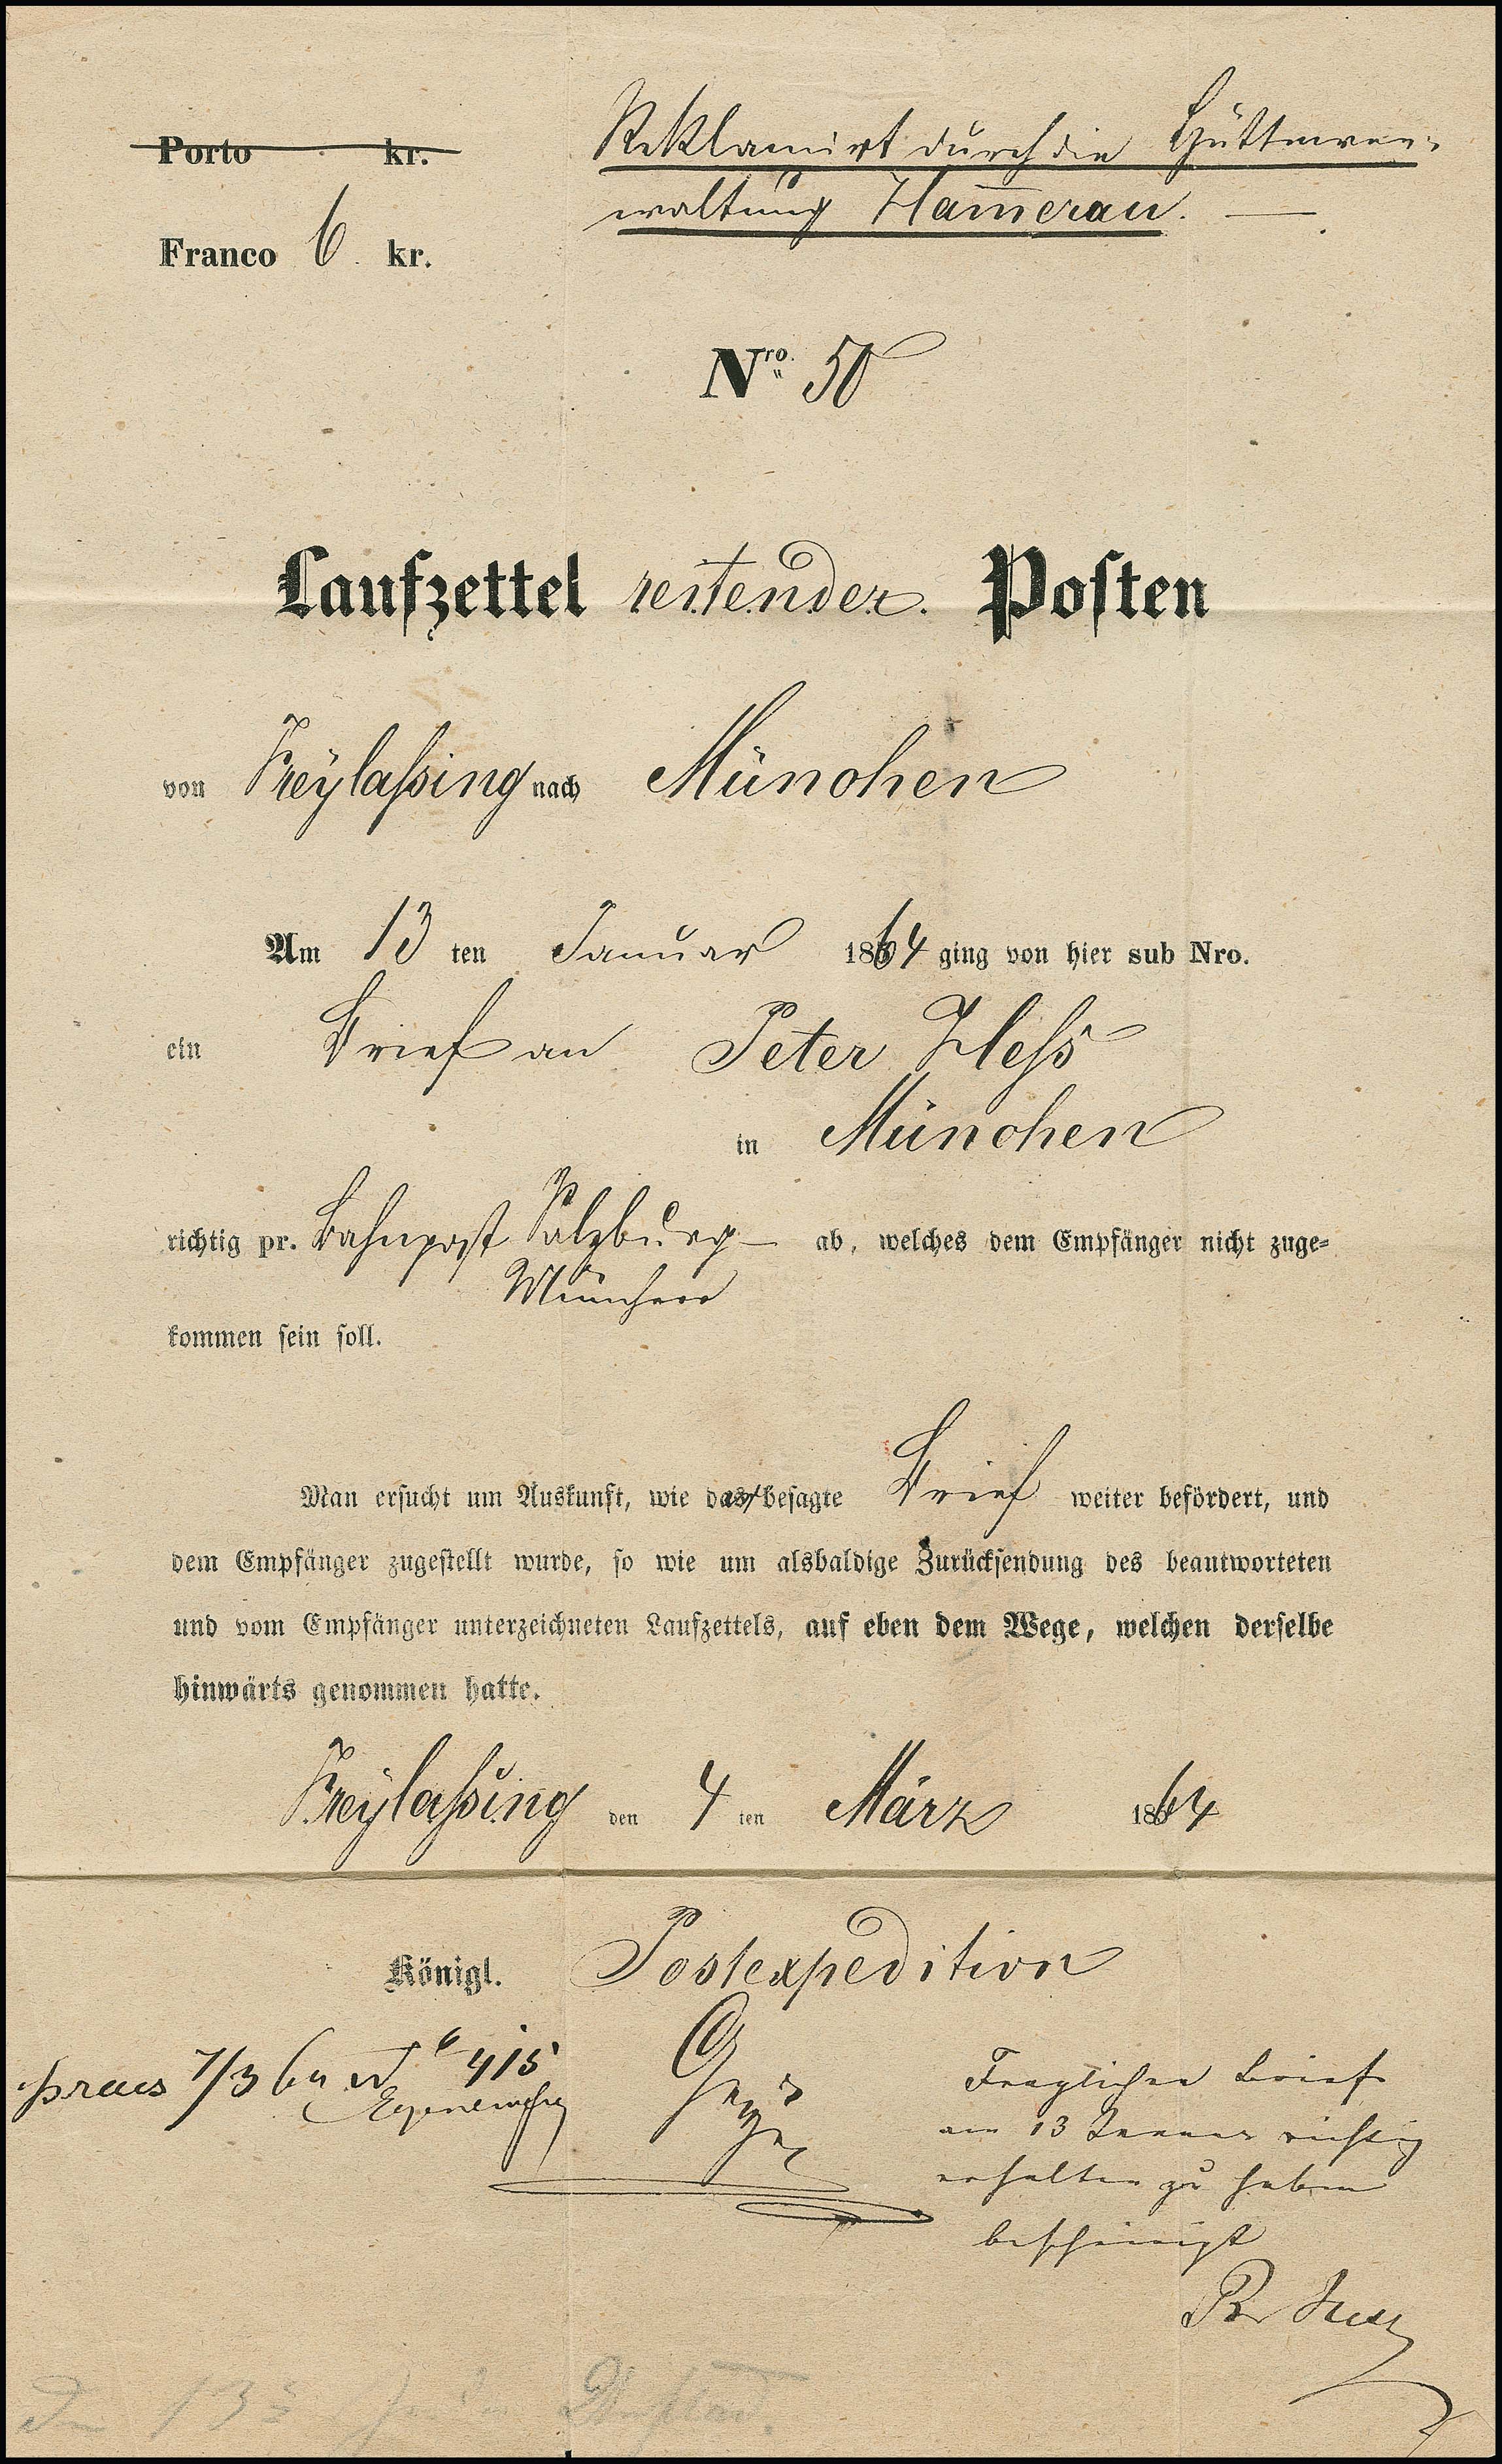 Porto kr.
Reklamirt durch die Hüttenver-
waltung Ham̅erau.
Franco 6 kr.
Nro. 50
Laufzettel reitender Posten
von Freylaßing nach München
Am 13 ten Januar 1864 ging von hier sub Nro.
ein Brief an Peter Heß
in München
richtig pr. Bahnpost Salzburg- ab, welches dem Empfänger nicht zuge-
München
kommen sein soll.
Man ersucht um Auskunft, wie besagte Brief weiter befördert, und
dem Empfänger zugestellt wurde, so wie um alsbaldige Zurücksendung des beantworteten
und vom Empfänger unterzeichneten Laufzettels, auf eben dem Wege, welchen derselbe
hinwärts genommen hatte.
Freylaßing den 4 ten März 1864
Königl. Postexpedition
praes 7/3 64 415
Fraglichen Brief
am 13 Januar richtig
erhalten zu haben
bescheinigt